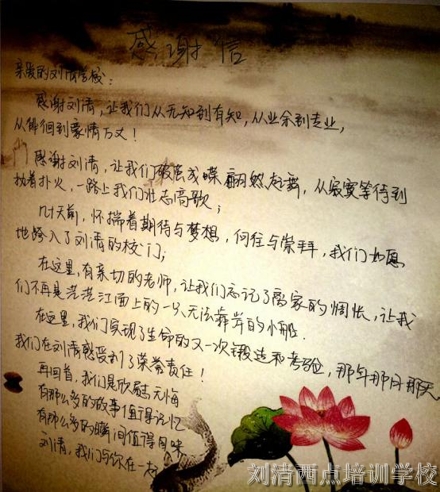 感谢信
亲爱的刘清学校：
感谢刘清，让我们从无知到有知，从业余到专业，
从徘徊到豪情万丈！
感谢刘清，让我们破茧成蝶翩然起舞，从寂寞等待到
执着扑火，一路上我们壮志高歌；
几天前，怀揣着期待与梦想，向往与崇拜，我们如愿
地跨入了刘清的校门；
在这里，有亲切的老师，让我们忘记了离家的惆怅，让我
们不再是茫茫江面上的一只无法靠岸的小船.
在这里，我们实现了生命的又一次锻造和考验，那年那月那天
我们在刘清感受到了荣誉责任！
再回首，我们是欣慰无悔
有那么多的故事值得记忆
有那么多的瞬间值得回味
刘清，我们与你在一起
刘清西点培训学校